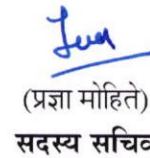 (प्रज्ञा मोहिते)
सदस्य सचिव